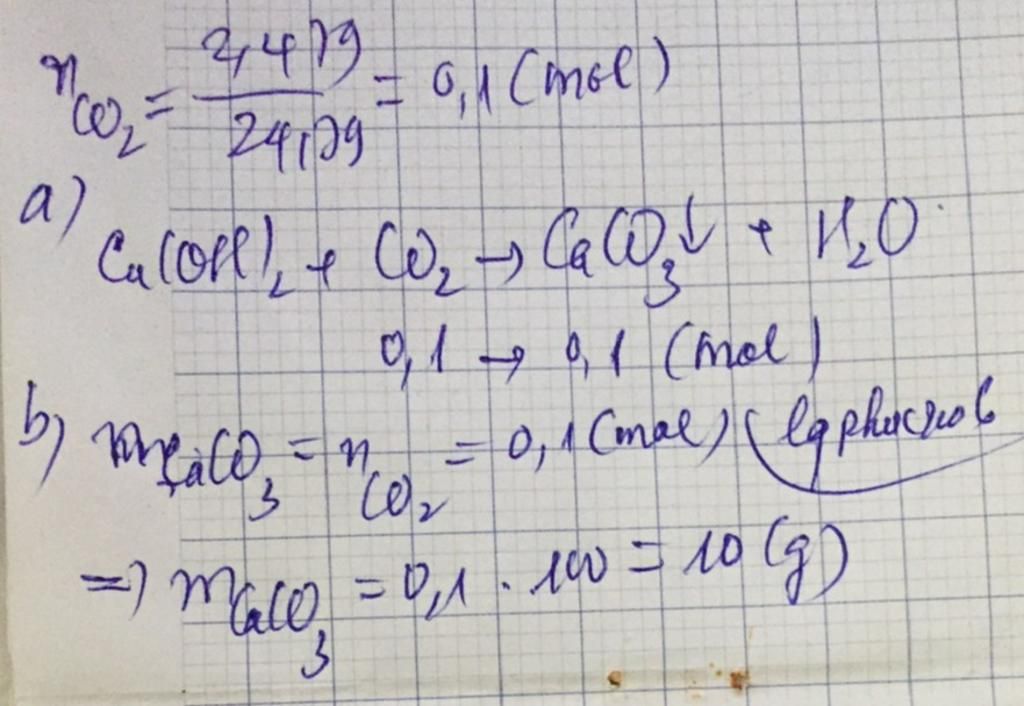 n_CO₂ = 2,479 / 24,79 = 0,1 (mol)
a)
Ca(OH)₂ + CO₂ → CaCO₃↓ + H₂O
0,1 → 0,1 (mol)
b) n_CaCO₃ = n_CO₂ = 0,1 (mol)
=) m_CaCO₃ = 0,1 . 100 = 10 (g)